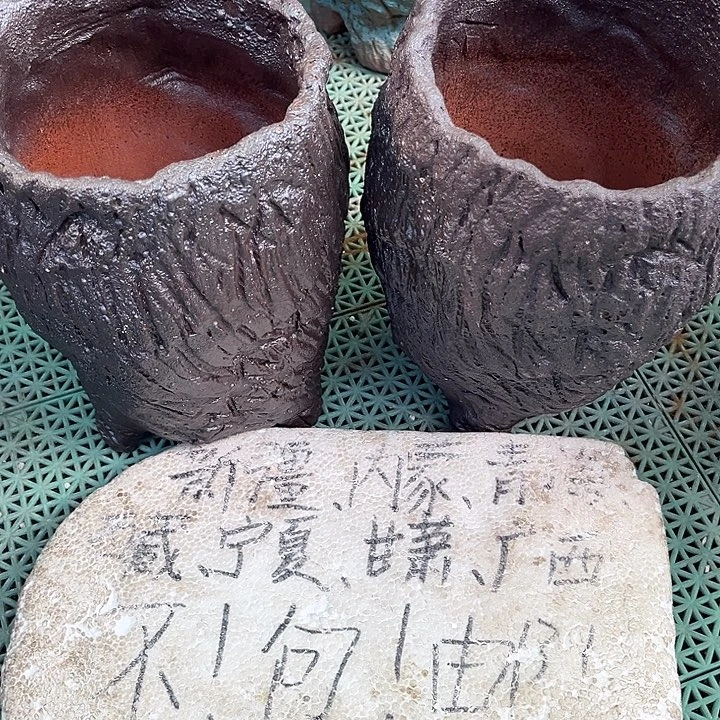 新疆、内蒙、青海、
藏、宁夏、甘肃、广西
不！包！邮！